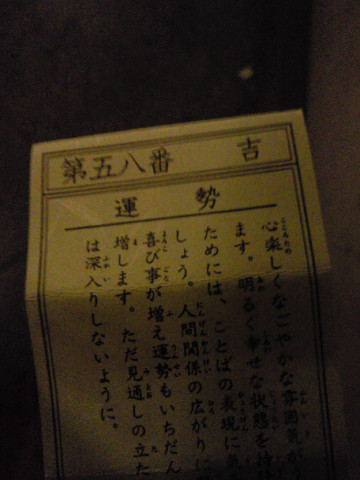 第五八番 吉
運勢
心楽しくなごやかな雰囲気が
ます。明るく幸せな状態を持
ためには、ことばの表現に
しょう。人間関係の広がりに
喜び事が増え運勢もいちだん
増します。ただ見通しの立た
は深入りしないように。